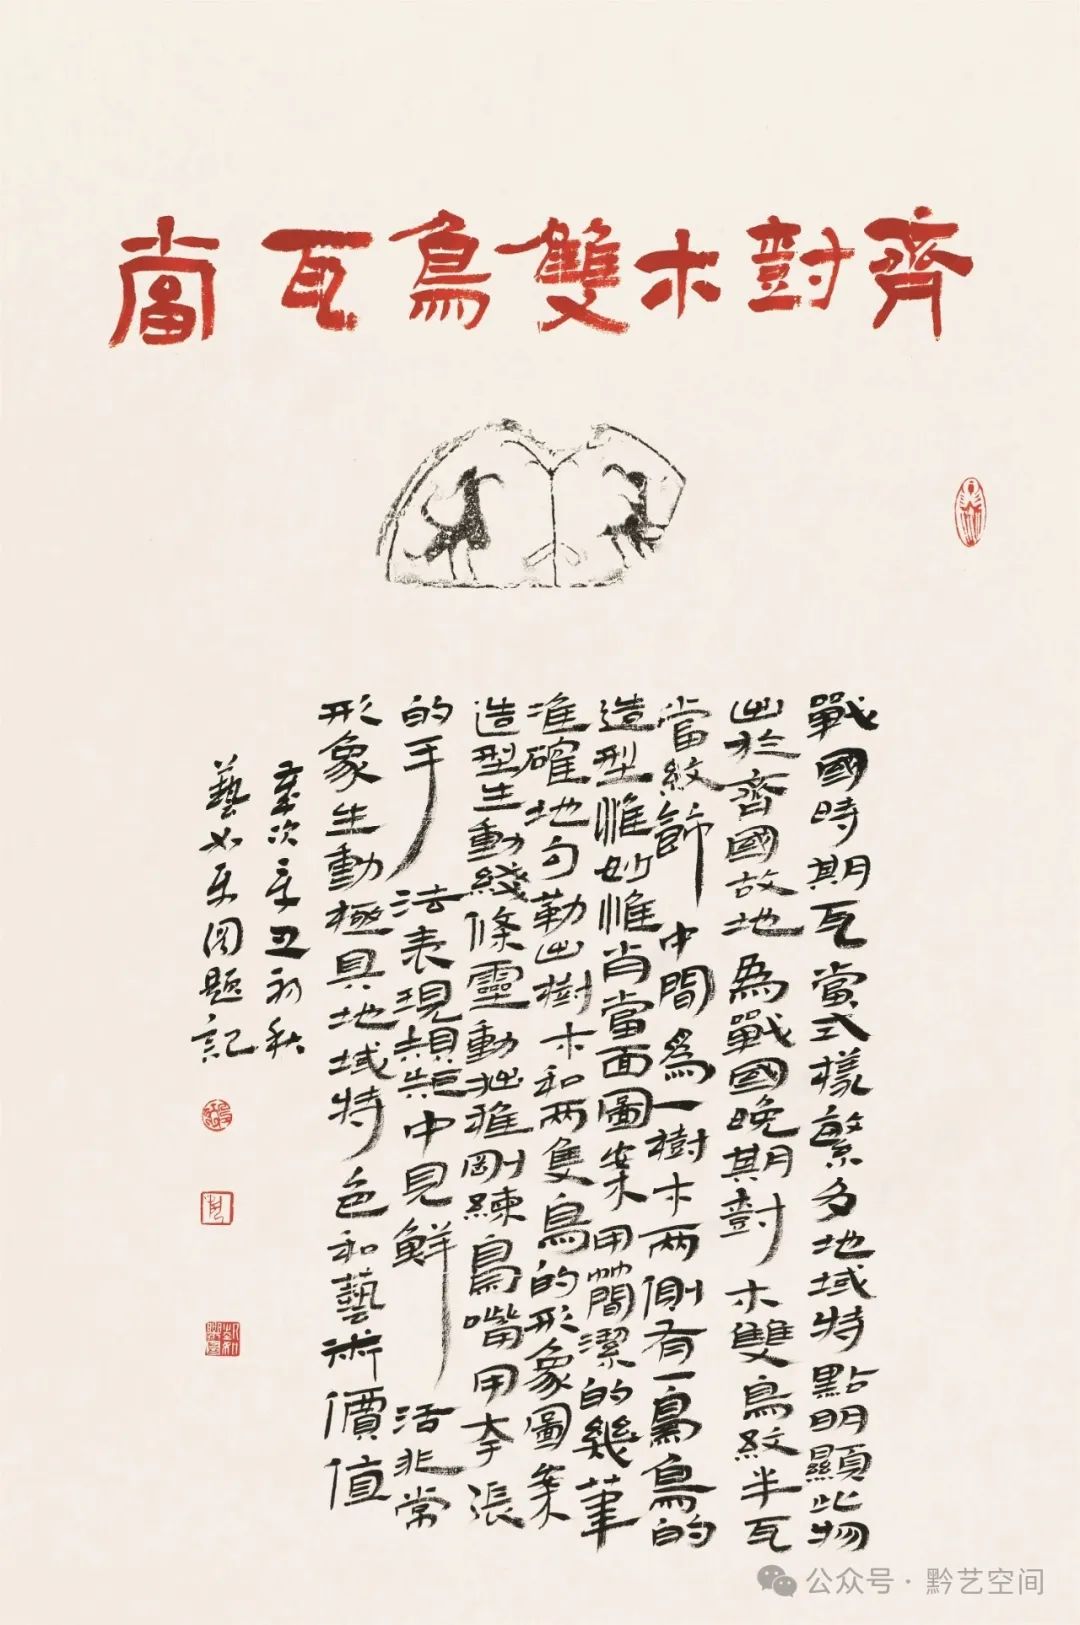 齊對木雙鳥瓦當
戰國時期瓦當式樣繁多地域特點明顯此物
出於齊國故地為戰國晚期對木雙鳥紋半瓦
當紋飾中間為一樹木兩側有一鳥鳥的
造型惟妙惟肖當面圖案用簡潔的幾筆
准確地勾勒出樹木和兩隻鳥的形象圖案
造型生動綫條靈動拙雅剛練鳥嘴用夸張
的手法表現規矩中見鮮活非常
形象生動極具地域特色和藝術價值
歲次辛丑初秋
藝題記
公众号·黔艺空间